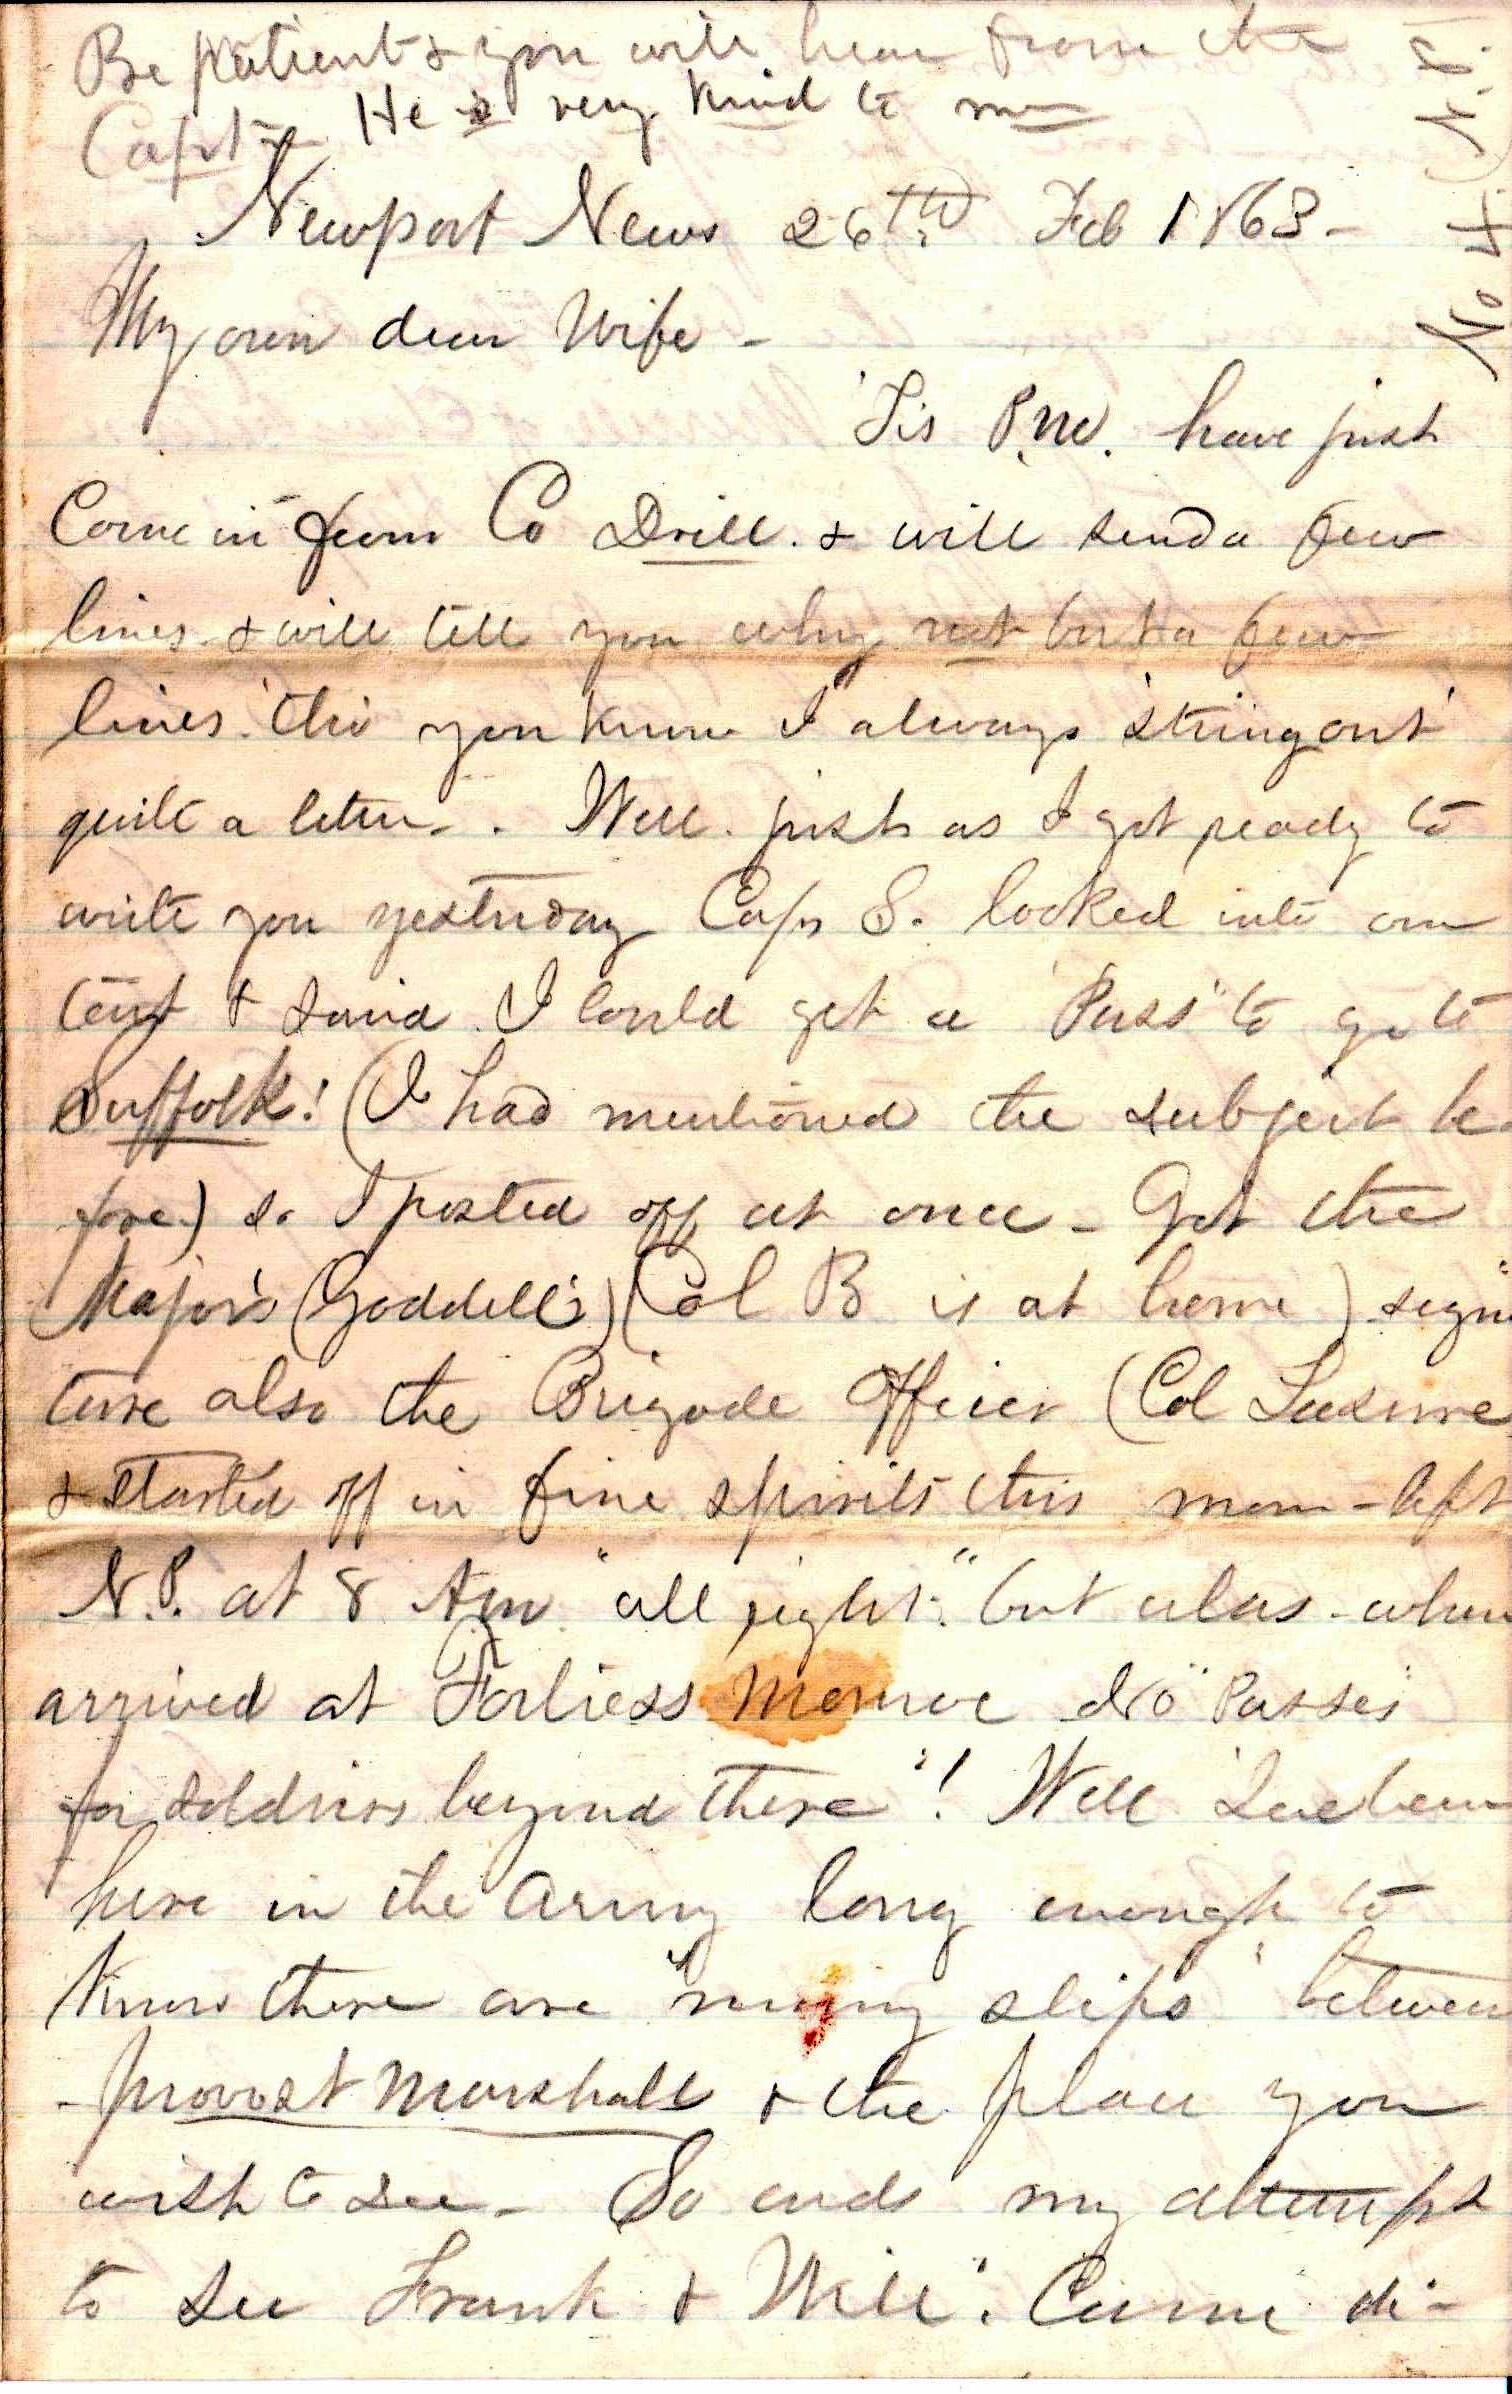 Be patient & you will hear from the
Capt - He is very kind to me
No 4. (N. N.)
Newport News 26th. Feb 1863 -
My own dear Wife -
'Tis P.M. have just
Come in from Co Drill. & will send a few
lines. & will tell you why not but a few
lines. 'tho you know I always 'string out'
quite a letter - . Well. just as I got ready to
write you yesterday Capt S. looked into our
tent & said I could get a "Pass" to go to
Suffolk! (I had mentioned the subject be-
fore) so I posted off at once - Got the
Major's (Goddell's) (Col B is at home) signa
ture also the Brigade Officer (Col Leasure
& started off in fine spirits this morn - left
N.P. at 8 Am "all right." but alas - when
arrived at Fortress Monroe "No Passes
for soldiers beyond there"! Well I've been
here in the Army long enough to
know there are "many slips" between
- Provost Marshall & the place you
wish to see - So ends my attempt
to see Frank & Will. Came di-